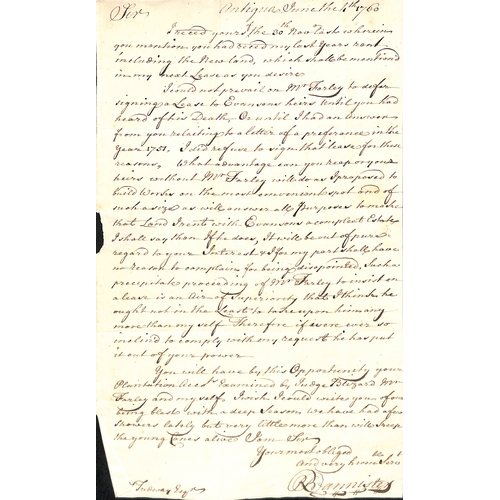 Sir Antigua June the 4th 1763
I recd yours the 30th Novr last wherein
you mention you had recd my last Years rent
including the New land, which shall be mentiond
in my next Lease as you desire
I could not prevail on Mr Farley to defer
signing a Lease to Evansons heirs until you had
heard of his Death, Or until I had an Answer
from you relating to a letter of a preferance in the
Year 1751. I did refuse to sign that lease for these
reasons, What advantage can you reap or your
heirs without Mr Farley will do as I proposed to
build Works on the most convenient spot and of
such a size as will answer all Purposes to make
that Land I rent with Evansons a compleat Estate
I shall say than If he does, It will be out of pure
regard to your Interest & I for my part shall have
no reason to complain for being disapointed, Such a
precipitate proceeding of Mr Farley to insist on
a lease is an Air of Superiority that I think he
ought not in the Least to take upon him any
more than my self Therefore if were ever so
inclied to comply with my request he has put
it out of your power
You will have by this Opportunity your
Plantation Accts Examined by Judge Blizard Mr
Farley and my self. I wish I could write you of our
being blest with a deep Season we have had a few
showers lately but very little more than will keep
the young Canes alive I am Sir
Your most obliged
and very hume Servt
R Bannister
Tudway Esqr